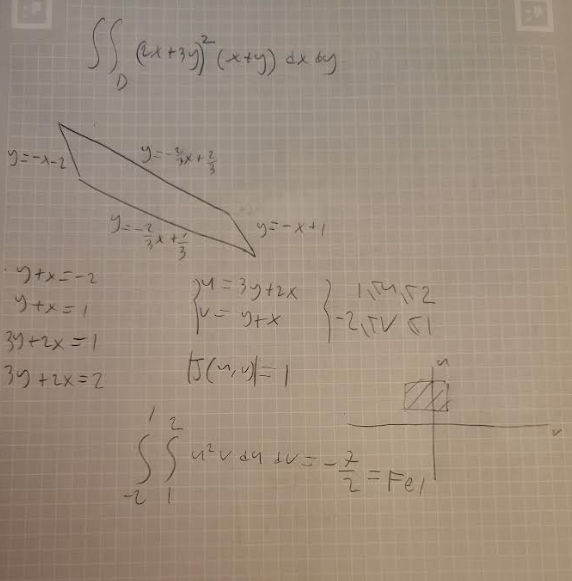 ∬_D (2x+3y)² (x+y) dx dy
y=-x-2
y=-2/3x+2/3
y=-2/3x+1/3
y=-x+1
y+x=-2
y+x=1
3y+2x=1
3y+2x=2
{u=3y+2x
{v=y+x
} 1≤u≤2
-2≤v≤1
|J(u,v)|=1
u
v
∫_{-2}^{1} ∫_{1}^{2} u²v du dv = -7/2 = Fel